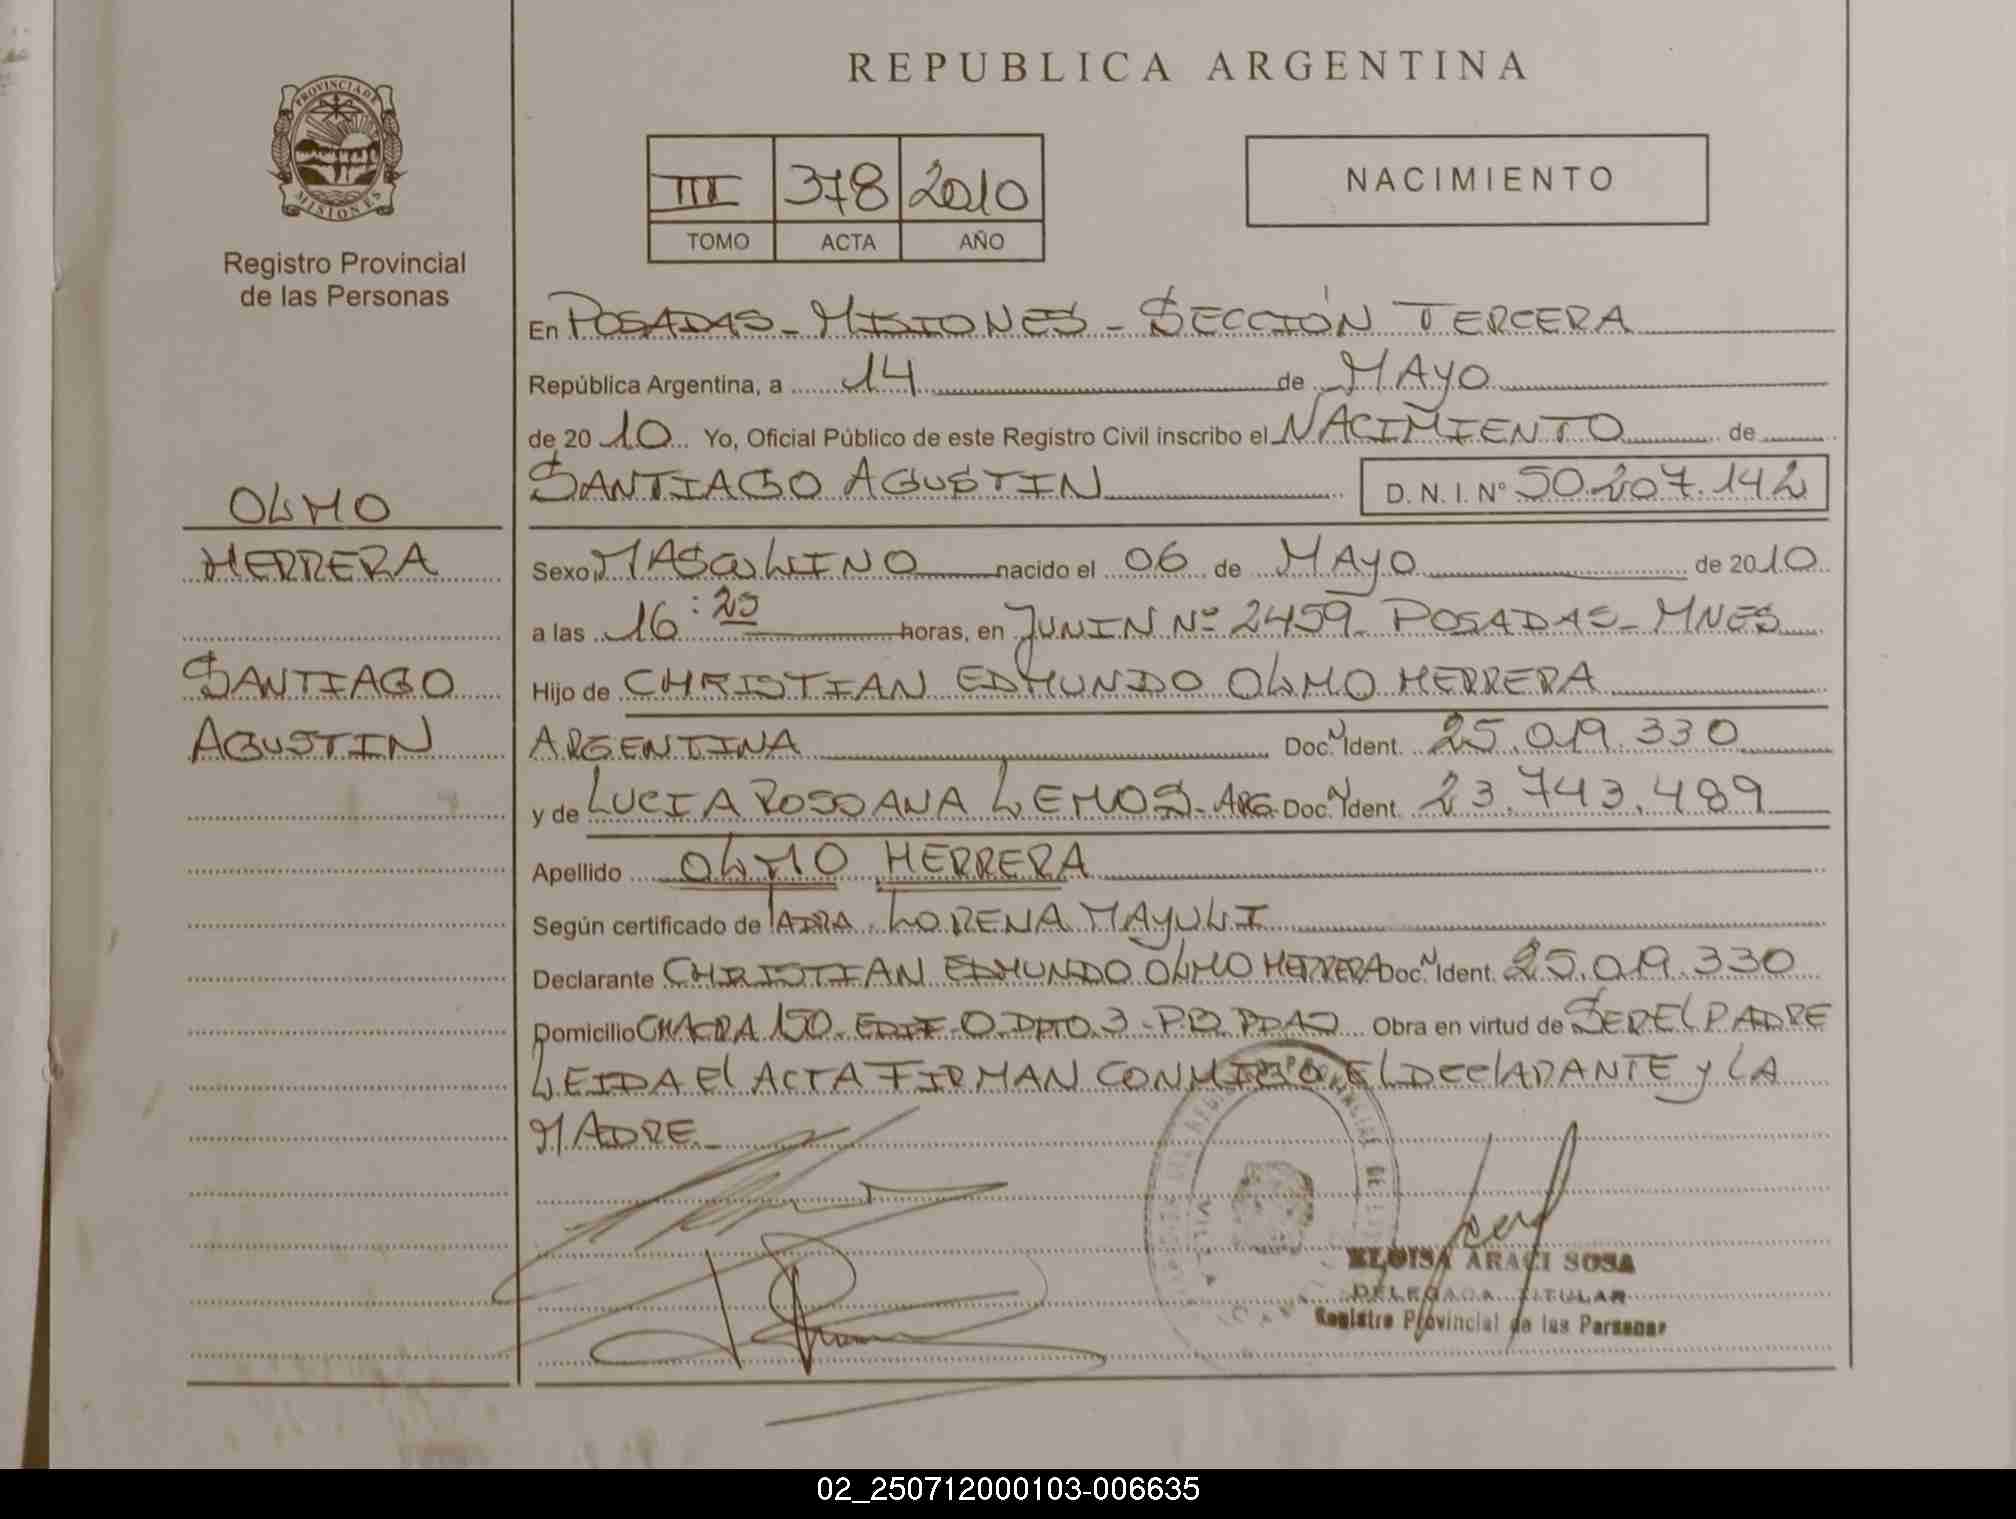 REPUBLICA ARGENTINA
PROVINCIA DE
MISIONES
Registro Provincial
de las Personas
III 378 2010
TOMO ACTA AÑO
NACIMIENTO
OLMO
HERRERA
SANTIAGO
AGUSTIN
En POSADAS - MISIONES - SECCIÓN TERCERA
República Argentina, a 14 de MAYO
de 2010 Yo, Oficial Público de este Registro Civil inscribo el NACIMIENTO de
SANTIAGO AGUSTIN D. N. I. N° 50.207.142
Sexo MASCULINO nacido el 06 de MAYO de 2010
a las 16:25 horas, en JUNIN Nº 2459 - POSADAS - MNES
Hijo de CHRISTIAN EDMUNDO OLMO HERRERA
ARGENTINA Doc. N Ident. 25.019.330
y de LUCIA ROSSANA LEMOS - ARG Doc. N Ident. 23.743.489
Apellido OLMO HERRERA
Según certificado de LORENA MAYULI
Declarante CHRISTIAN EDMUNDO OLMO HERRERA Doc. N Ident. 25.019.330
Domicilio CHACRA 150 - EDIF - O - DPTO. 3 - P.B. PDAS Obra en virtud de SER EL PADRE
LEIDA El ACTA FIRMAN CONMIGO El DEClARANTE y LA
MADRE
ELOISA ARACI SOSA
DELEGADA TITULAR
Registro Provincial de las Personas
02_250712000103-006635